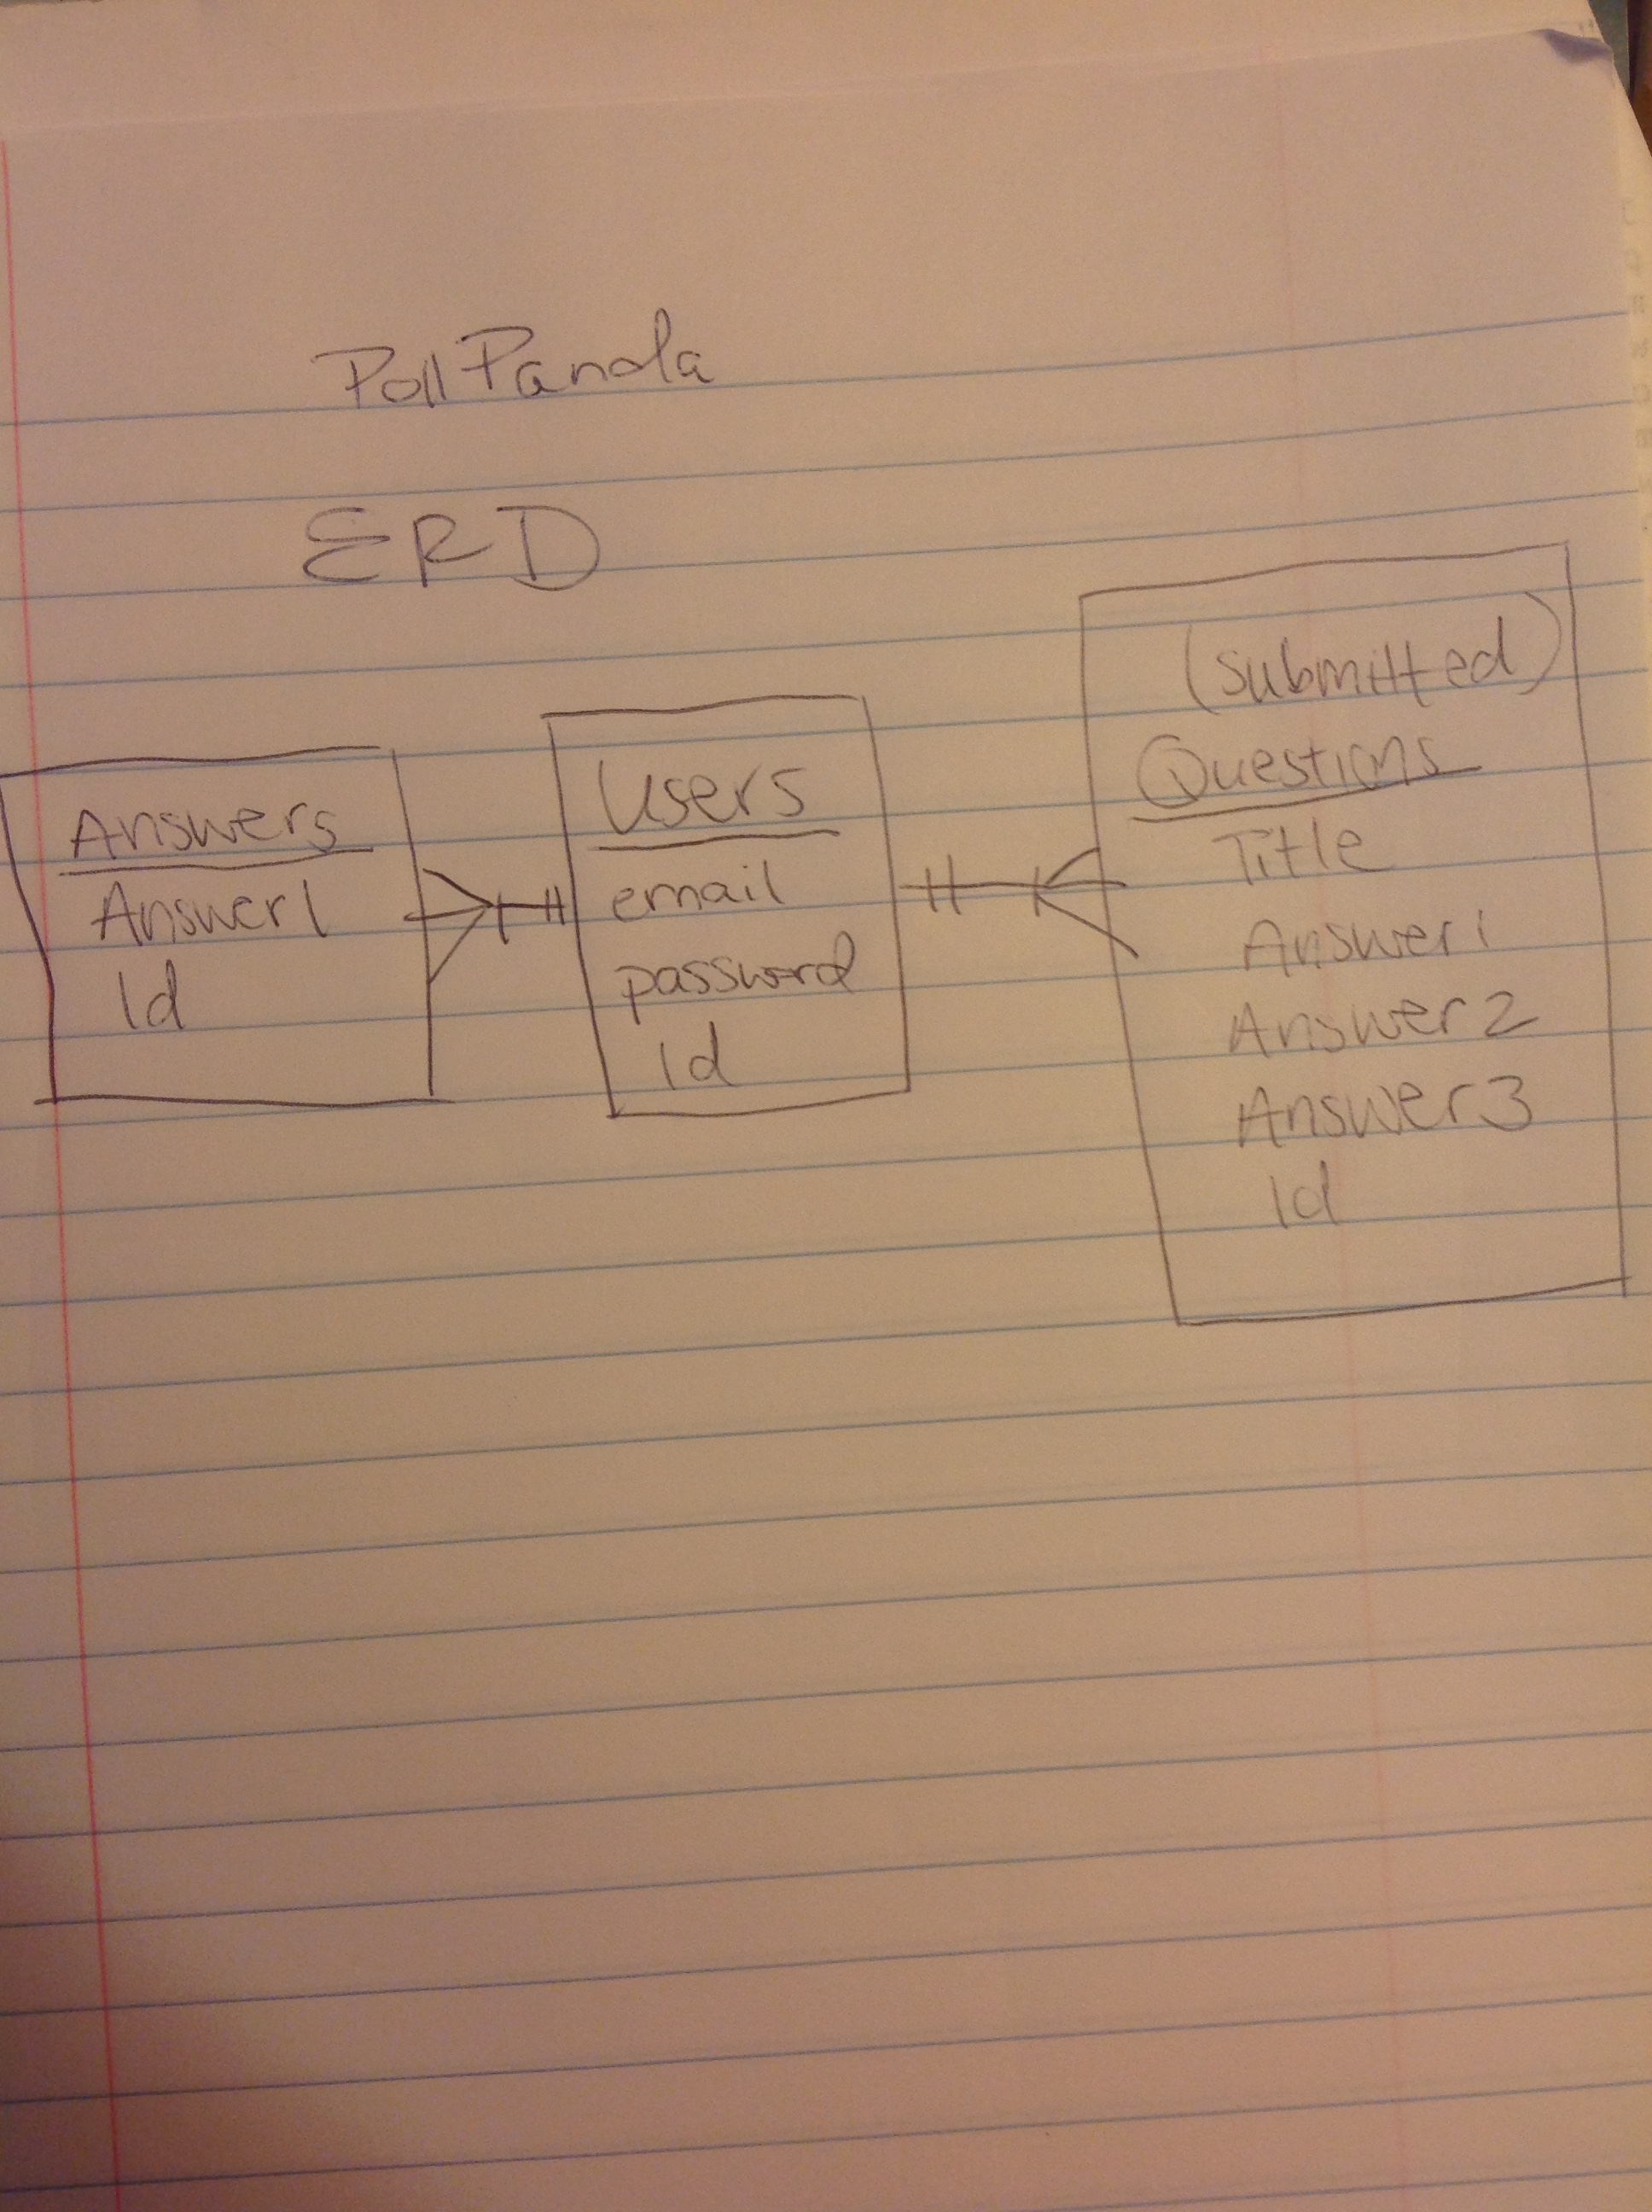 PollPanda
ERD
Answers
Answer1
Id
Users
email
password
Id
(submitted)
Questions
Title
Answer1
Answer2
Answer3
Id